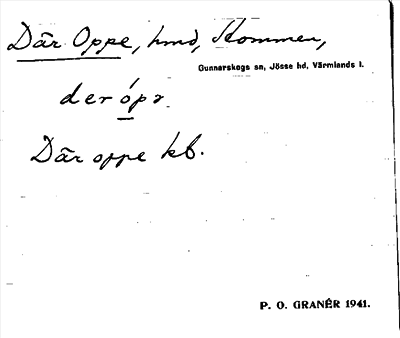 Där Oppe, hmd, Kommen,
Gunnarskogs sn, Jösse hd, Värmlands l.
der ópə.
Där oppe kb.
P. O. GRANÉR 1941.